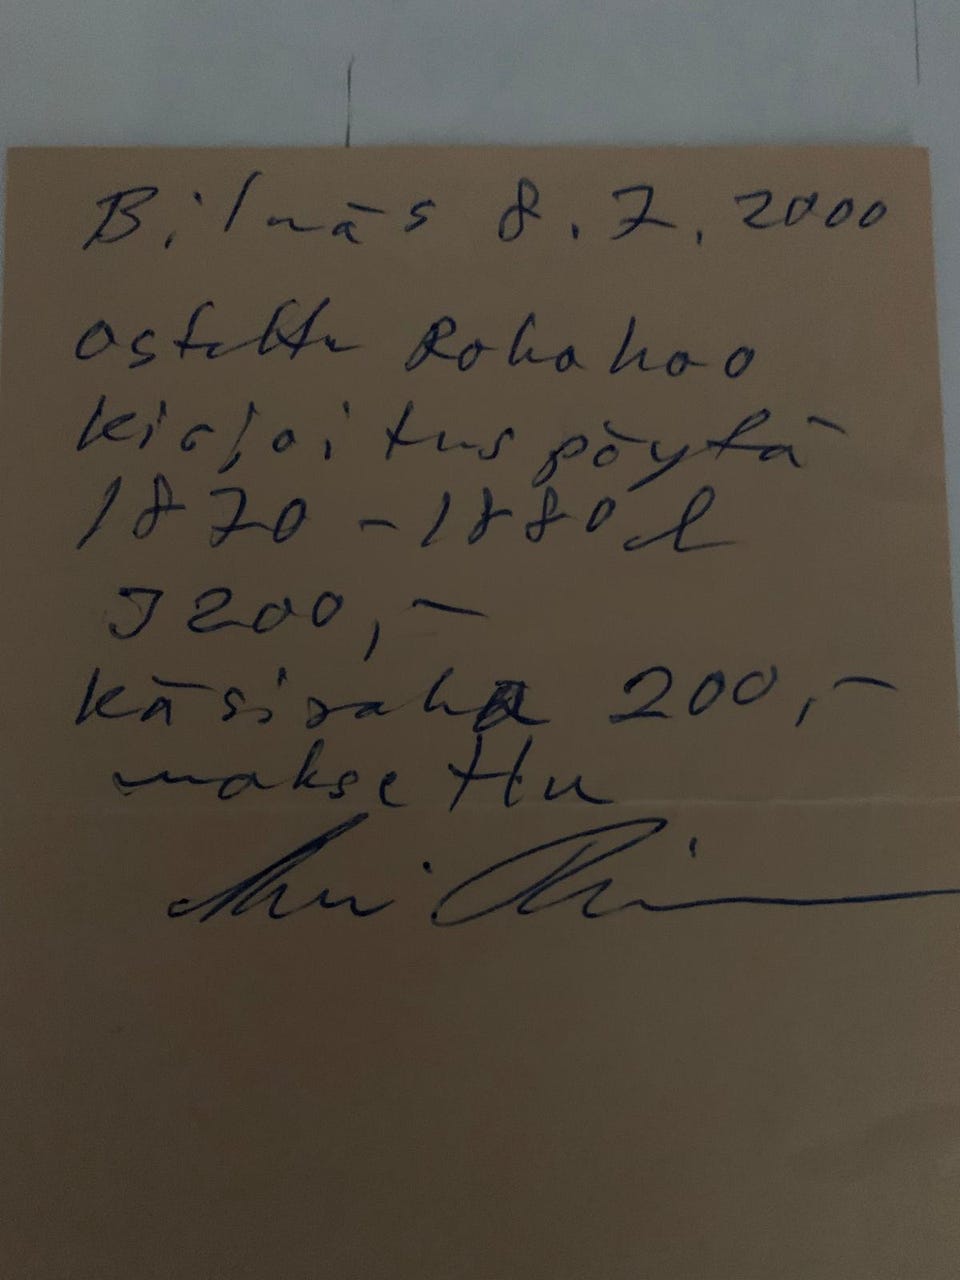 Bilnäs 8.7.2000
ostettu Rokokoo
kirjoituspöytä
1870-1880 l
5200,-
käsiraha 200,-
maksettu